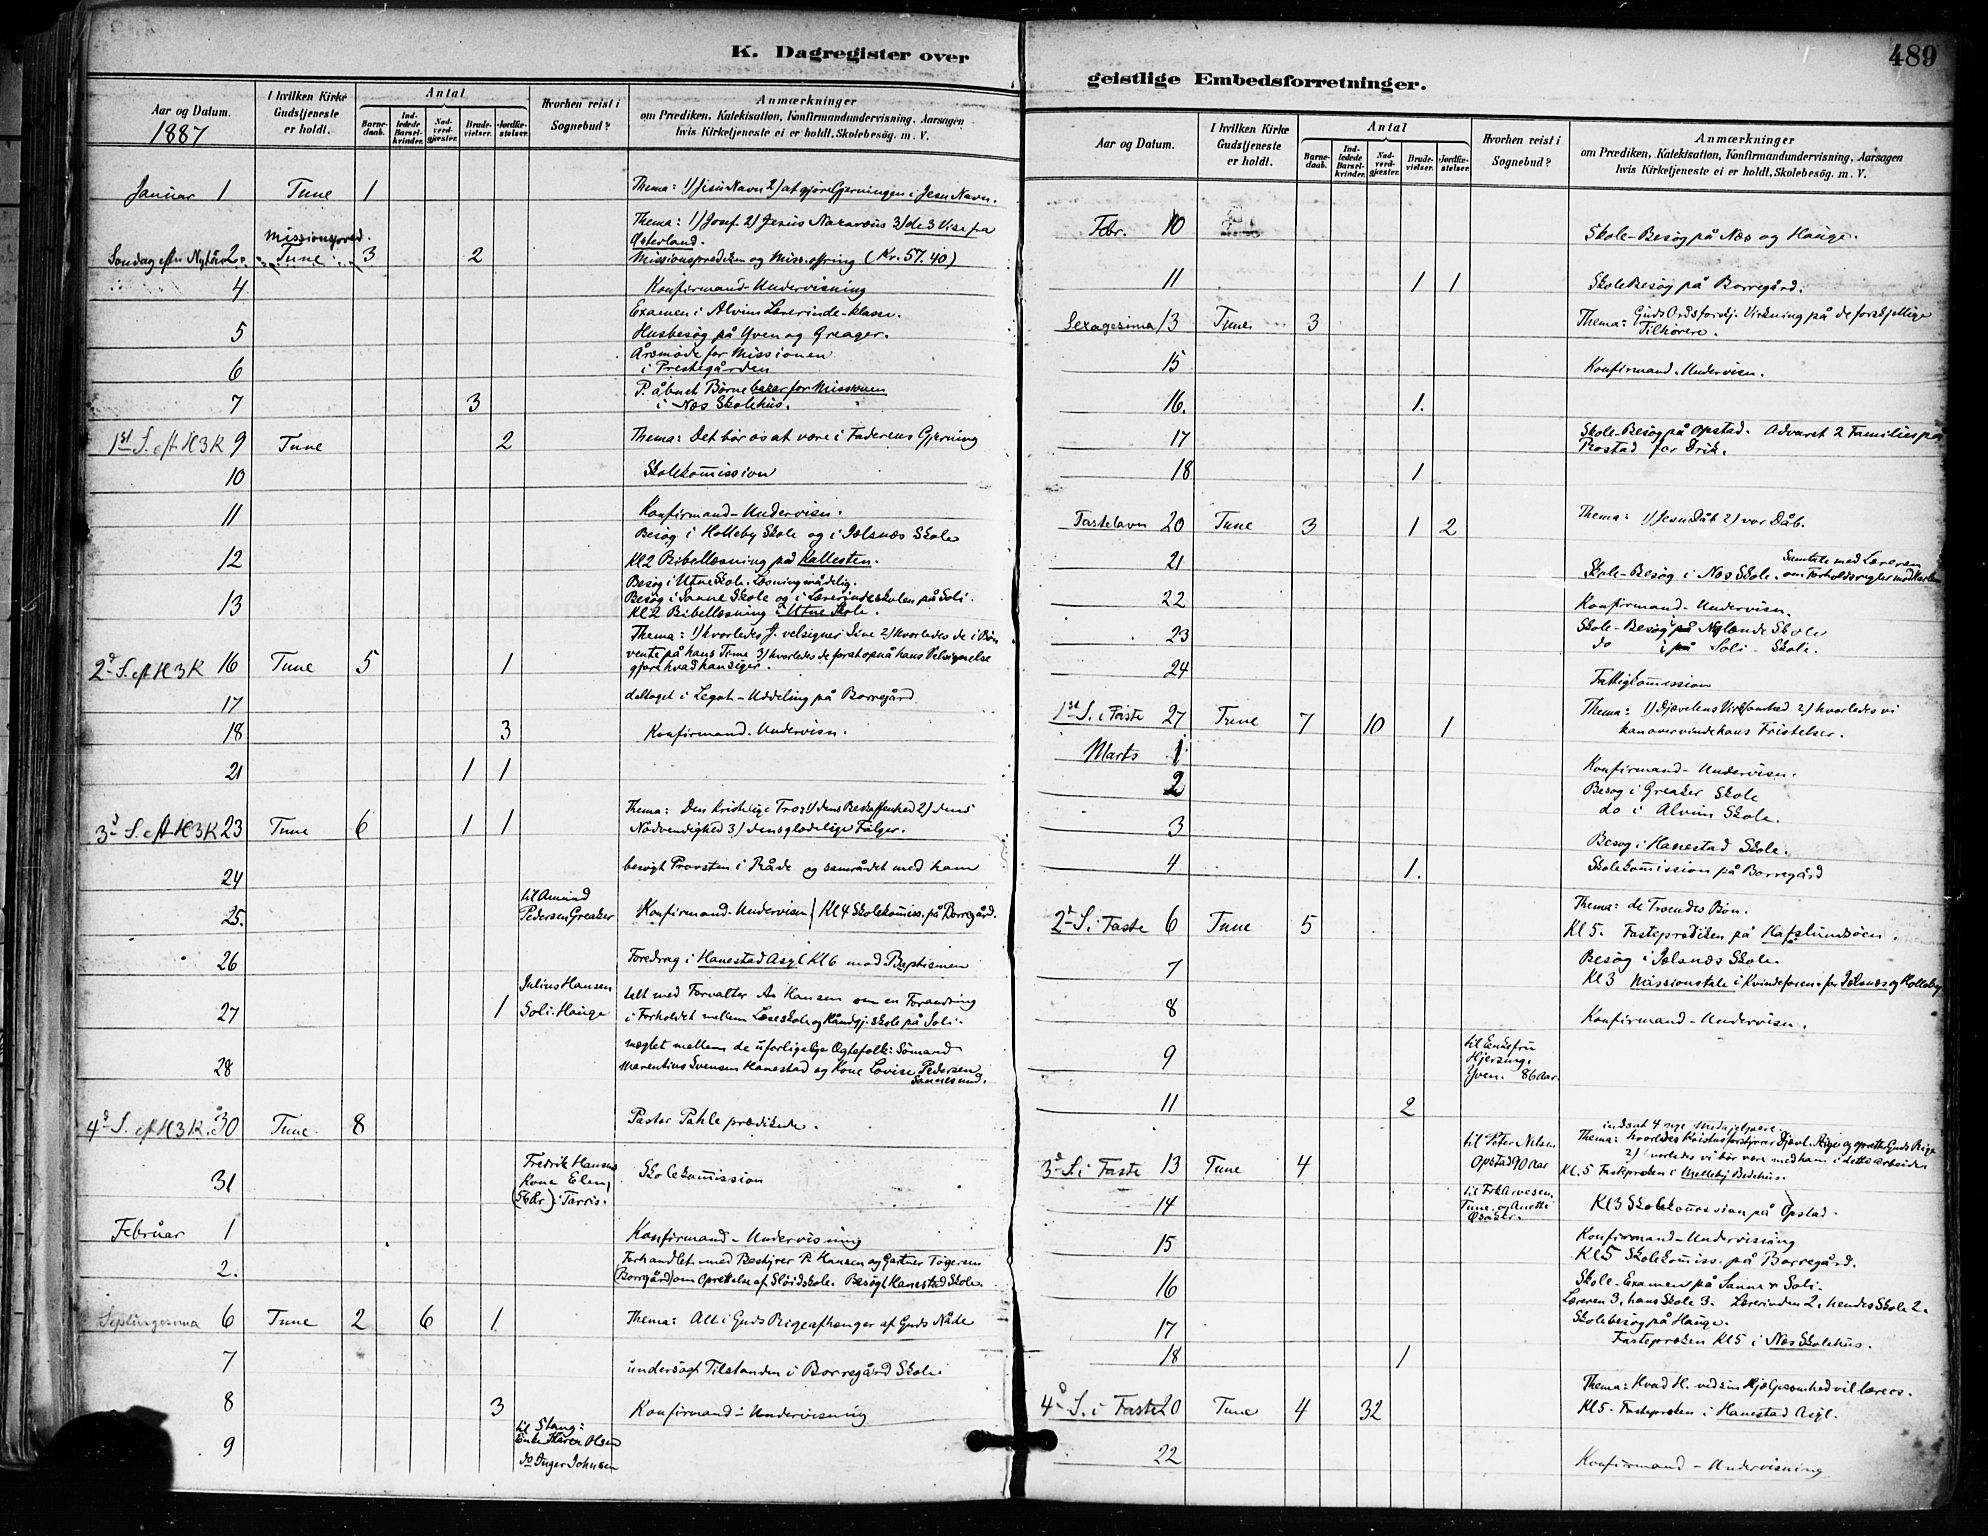 K. Dagregister over
Aar og Datum.
1887
I hvilken Kirke Gudstjeneste er holdt.
Antal
Barne-daab.
Ind-ledede Barsel-kvinder.
Nad-verd-gjester.
Brude-vielser.
Jordfæ-stelser.
Hvorhen reist i Sognebud?
Anmærkninger
om Prædiken, Katekisation, Konfirmandundervisning, Aarsagen
hvis Kirketjeneste ei er holdt, Skolebesøg. m. V.
Januar 1 Tune 1 Thema: 1) Jesu Navn 2) at gjøre Gjerningen i Jesu Navn.
Thema: 1) Josef 2) Jesus Nazaræus 3) de 3 Vise fra
Missionspræd. Østerland.
Søndag eftr Nytår 2 Tune 3 2 Missionsprediken og Miss.offring (Kr. 57.40)
4 Konfirmand-Undervisning
Examen i Alvim Lærerinde-klasse.
5 Husbesøg på Yven og Greager.
Årsmøde for Missionen
6 i Prestegården
P. åbnet Børnebazar for Missionen
7 3 i Næs Skolehus.
1st S. eft H3K 9 Tune 2 Thema: Det bør os at være i Faderens Gjerning
10 Skolekomission
11 Konfirmand-Undervisn.
Besøg i Holleby Skole og i Jælsnæs Skole
12 Kl 2 Bibellæsning på Kallesten.
Besøg i Utne Skole. Læsning mådelig.
Besøg i Sanne Skole og i Lærerindeskolen på Soli.
13 Kl 2 Bibellæsning i Utne Skole.
Thema: 1) hvorledes J. velsigner Sine 2) hvorledes de i Bøn
2d S. eft H3K 16 Tune 5 1 vente på hans Time 3) hvorledes de forst opnå hans Velsignelse
gjøre hvad han siger.
17 deltaget i Legat-Uddeling på Borregård
18 3 Konfirmand. Undervisn.
21 1 1
Thema: Den kristelige Tro 1) dens Beskaffenhed 2) dens
3d S. eft H3K 23 Tune 6 1 1 Nødvendighed 3) dens glædelige Følger.
24 besøgt Provsten i Råde og samrådet med ham
til Amund
25. Pedersen Greaker Konfirmand-Undervisen / Kl 4 Skolekomiss. på Borregård.
26 Foredrag i Hanestad Asyl Kl 6 mod Baptismen
Julius Hansen
talt med Forvalter As Hansen om en Forandring
27 1 Soli-Hauge i Forholdet mellem Læseskole og Håndgj.skole på Soli.
mæglet mellem de uforligelige Ægtefolk: Sømand
28 Marentius Svensen Hanestad og Kone Lovise Pedersen
Sannesund.
4d S. eft H3K 30 Tune 8 Pastor Pahle prædikede.
Fredrik Hansens
31 Kone Elen, Skolekomission
(56 År) i Tarris.
Februar 1 Konfirmand-Undervisning
Forhandlet med Bestyrer P. Hansen og Gartner Togersen
2. (Borrgård) om Oprettelse af Sløidskole. Besøgt Hanestad Skole
Septuagesima 6 Tune 2 6 1. Thema: Alt i Guds Rige afhænger af Guds Nåde
7 undersøgt Tilstanden i Borregård Skole
8 3 Konfirmand-Undervisning
til Stang:
9 Enke Karen Olsen
do Inger Johnsen
geistlige Embedsforretninger.
489
Aar og Datum.
I hvilken Kirke Gudstjeneste er holdt.
Antal
Barne-daab.
Ind-ledede Barsel-kvinder.
Nad-verd-gjester.
Brude-vielser.
Jordfæ-stelser.
Hvorhen reist i Sognebud?
Anmærkninger
om Prædiken, Katekisation, Konfirmandundervisning, Aarsagen
hvis Kirketjeneste ei er holdt, Skolebesøg. m. V.
Febr. 10 Skole-Besøg på Næs og Hauge.
11 1 1 Skole Besøg på Borregård.
Sexagesima 13 Tune 3 Thema: Guds Ords forskj. Virkning på de forskjellige
Tilhørere.
15 Konfirmand. Undervisn.
16. 1.
17 Skole-Besøg på Opstad. Advaret 2 Familier på
Rostad for Drik.
18 1
Fastelavn 20 Tune 3 1 2 Thema: 1) Jesu Dåb 2) vor Dåb.
21 Samtale med Læreren
Skole-Besøg i Næs Skole. om Forholdsregler mod
22 Konfirmand-Undervisn.
23 Skole-Besøg på Nylænde Skole
do i på Soli-Skole.
24 Fattigkomission
1st S. i Faste 27 Tune 7 10 1 Thema: 1) Djævelens Virksomhed 2) hvorledes vi
kan overvinde hans Fristelser.
Marts 1 Konfirmand-Undervisn.
2 Besøg i Greaker Skole
do i Alvim Skole.
3 Besøg i Hanestad Skole.
4 1. Skolekomission på Borregård
2d S. i Faste 6 Tune 5 Thema: de Troendes Bøn.
Kl 5. Fasteprædiken på Hafslundsøen.
7 Besøg i Jælsnæs Skole
Kl 3 Missionstale i Kvindeforen. for Jælsnæs og Holleby
8 Konfirmand-Undervisn.
til Enkefru
9 Hjersing,
Yven. 86 Aar.
11 2
indsat 4 nye Medhjelpere.
til Peter Nilsen Thema: hvorledes Kristus forstyrrer Djævl. Rige og opretter Guds Rige
3d S. i Faste 13 Tune 4 Opstad 90 Aar 2) hvorledes vi bør være med ham i dette Arbeide
Kl. 5 Fastepræken i Melleby Bedehus.
til Frk Arvesen,
14 Tune og Anette Kl 3 Skolekomission på Opstad.
15 Konfirmand-Undervisning
Kl 5 Skolekomiss. på Borregård.
16 Skole-Examen på Sanne & Soli.
Læreren 3, hans Skole 3. Lærerinden 2, hendes Skole 2.
17 Skolebesøg på Hauge.
Fastepræken Kl 5 i Næs Skolehus.
18 1
4d S. i Faste 20 Tune 4 32 Thema: Hvad H. ved sin Hjælpsomhed vil lære os.
Kl 5. Fastepræken i Hanestad Asyl.
22 Konfirmand-Undervisning